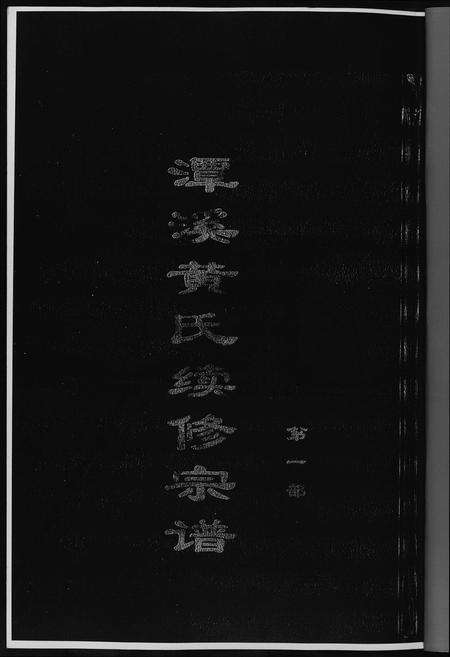 潭溪黄氏续修宗谱
第一部